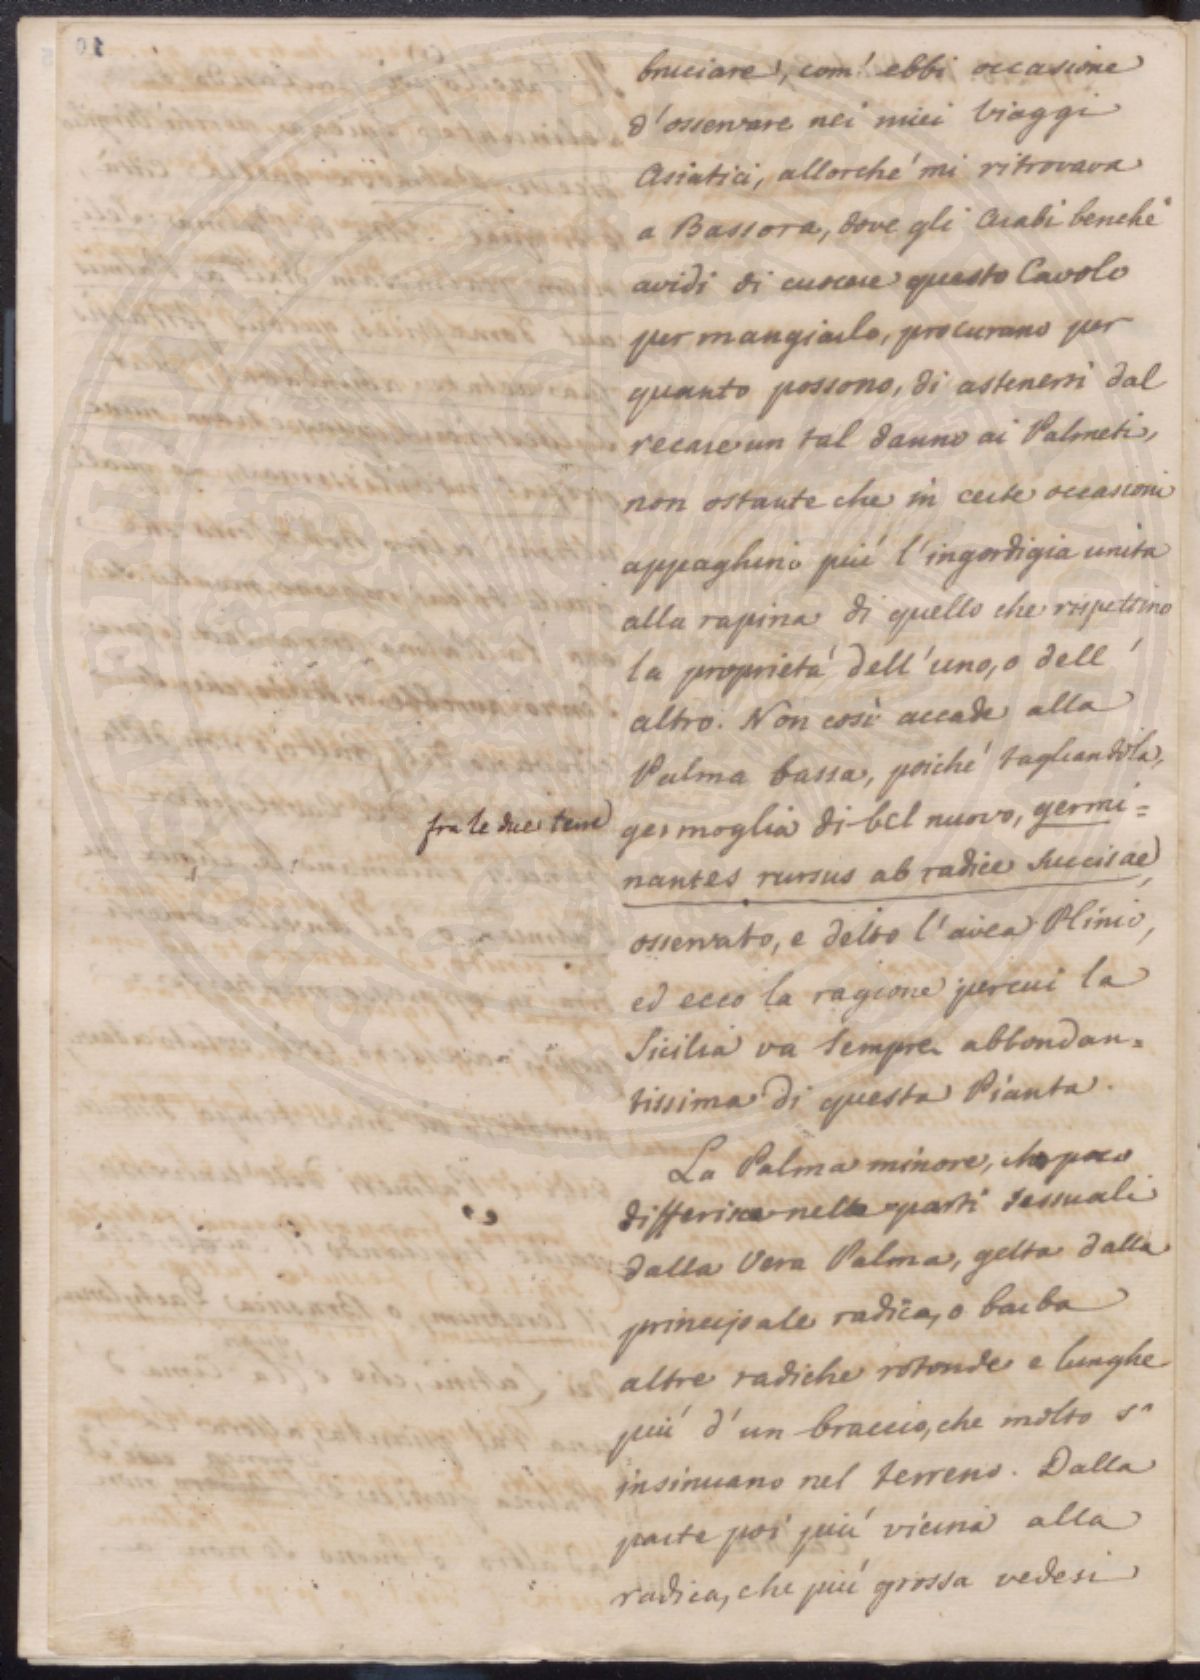 bruciare, com' ebbi occasione
d'osservare nei miei Viaggi
Asiatici, allorché mi ritrovava
a Bassora, dove gli Arabi benché
avidi di cuocere questo Cavolo
per mangiarlo, procurano per
quanto possono, di astenersi dal
recare un tal danno ai Palmeti,
non ostante che in certe occasioni
appaghino più l'ingordigia unita
alla rapina di quello che rispettino
la proprietà dell'uno, o dell'
altro. Non così accade alla
Palma bassa, poiché tagliandola,
fra le due terre
germoglia di bel nuovo, germi=
nantes rursus ab radice succisae,
osservato, e detto l'avea Plinio,
ed ecco la ragione percui la
Sicilia va sempre abbondan=
tissima di questa Pianta.
La Palma minore, che poco
differisce nelle parti sessuali
dalla Vera Palma, getta dalla
principale radica, o barba
altre radiche rotonde e lunghe
più d'un braccio, che molto s'
insinuano nel terreno. Dalla
parte poi più vicina alla
radica, che più grossa vedesi